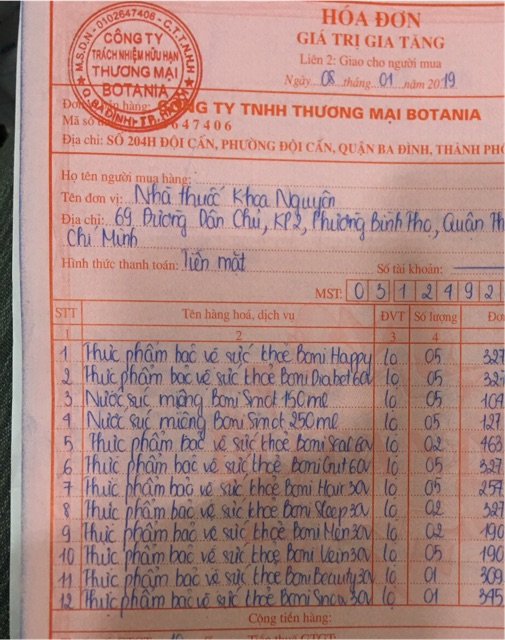 HÓA ĐƠN
GIÁ TRỊ GIA TĂNG
Liên 2: Giao cho người mua
Ngày 08 tháng 01 năm 2019
M.S.D.N - 0102647406 - C.T.T.N.H.H
CÔNG TY
TRÁCH NHIỆM HỮU HẠN
THƯƠNG MẠI
BOTANIA
Q. BA ĐÌNH - TP.
Đơn hàng: CÔNG TY TNHH THƯƠNG MẠI BOTANIA
Mã số 647406
Địa chỉ: SỐ 204H ĐỘI CẤN, PHƯỜNG ĐỘI CẤN, QUẬN BA ĐÌNH, THÀNH PHỐ
Họ tên người mua hàng:
Tên đơn vị: Nhà thuốc Khoa Nguyên
Địa chỉ: 69 Đường Dân Chủ, KP2, Phường Bình Thọ, Quận Th
Chí Minh
Hình thức thanh toán: Tiền mặt Số tài khoản:
MST: 0 3 1 2 4 9 2
STT Tên hàng hoá, dịch vụ ĐVT Số lượng Đơ
1 2 3 4
1 Thực phẩm bảo vệ sức khỏe Boni Happy lọ 05 327
2 Thực phẩm bảo vệ sức khỏe Boni Diabet 60v lọ 05 327
3 Nước súc miệng Boni Smot 150ml lọ 05 104
4 Nước súc miệng Boni Smot 250ml lọ 05 127
5 Thực phẩm bảo vệ sức khỏe Boni Seal 60v lọ 02 463
6 Thực phẩm bảo vệ sức khỏe Boni Gut 60v lọ 05 327
7 Thực phẩm bảo vệ sức khỏe Boni Hair 30v lọ 05 257
8 Thực phẩm bảo vệ sức khỏe Boni Sleep 30v lọ 02 327
9 Thực phẩm bảo vệ sức khỏe Boni Men 30v lọ 02 190
10 Thực phẩm bảo vệ sức khỏe Boni Vein 30v lọ 05 190
11 Thực phẩm bảo vệ sức khỏe Boni Beauty 30v lọ 01 309
12 Thực phẩm bảo vệ sức khỏe Boni 30v lọ 01 345
Cộng tiền hàng: